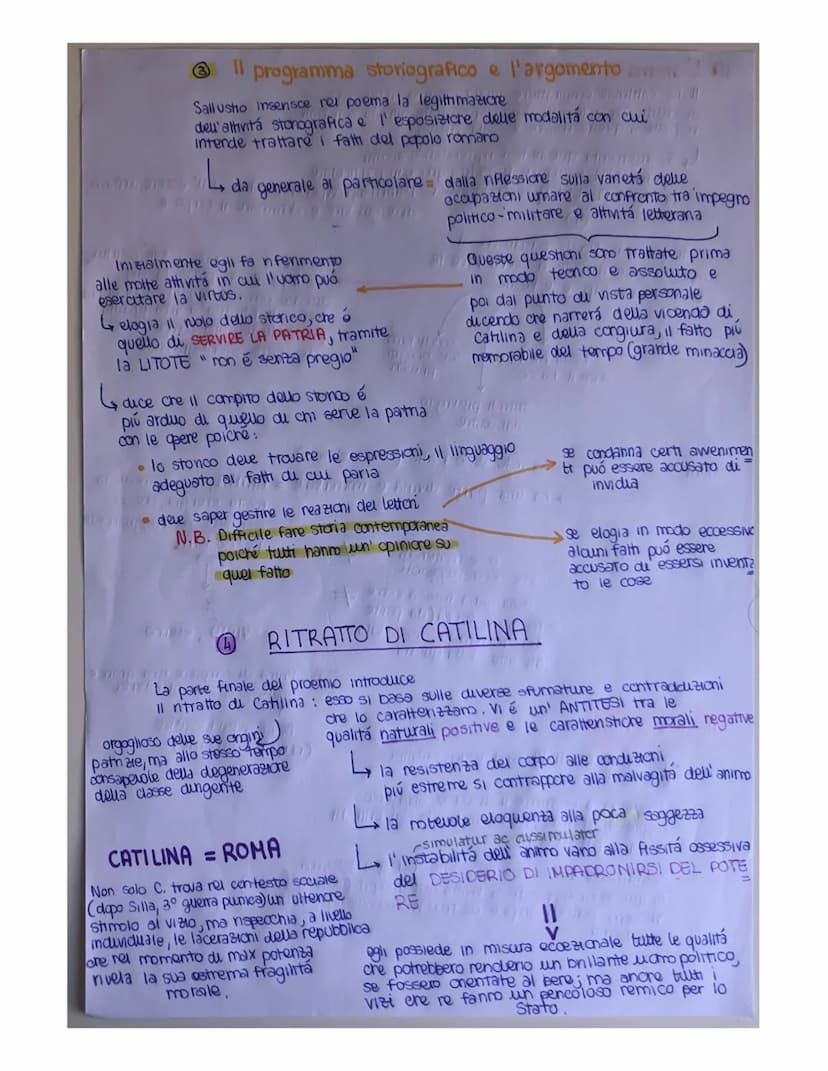 ③ Il programma storiografico e l'argomento
Sallustio inserisce nel poema la legittimazione
dell'attivitá storiografica e l'esposizione delle modalitá con cui
intende trattare i fatti del popolo romano
↳ da generale al particolare = dalla riflessione sulla varietá delle
occupazioni umane al confronto tra impegno
politico-militare e attivitá letteraria
Queste questioni sono trattate prima
in modo teorico e assoluto e
poi dal punto di vista personale
dicendo che narrerá della vicenda di
Catilina e della congiura, il fatto piú
memorabile del tempo (grande minaccia)
Inizialmente egli fa riferimento
alle molte attivitá in cui l'uomo puó
esercitare la virtus.
↳ elogia il ruolo dello storico, che é
quello di SERVIRE LA PATRIA, tramite
la LITOTE "non é senza pregio"
↳ dice che il compito dello storico é
piú arduo di quello di chi serve la patria
con le opere poiché:
• lo storico deve trovare le espressioni, il linguaggio
adeguato ai fatti di cui parla
• deve saper gestire le reazioni dei lettori
N.B. Difficile fare storia contemporanea
poiché tutti hanno un'opinione su
quel fatto
se condanna certi avvenimen
ti puó essere accusato di
invidia
se elogia in modo eccessivo
alcuni fatti puó essere
accusato di essersi inventa
to le cose
④ RITRATTO DI CATILINA
La parte finale del proemio introduce
il ritratto di Catilina: esso si basa sulle diverse sfumature e contraddizioni
che lo caratterizzano. Vi é un'ANTITESI tra le
qualitá naturali positive e le caratteristiche morali negative
orgoglioso delle sue origini
patrizie, ma allo stesso tempo
consapevole della degenerazione
della classe dirigente
↳ la resistenza del corpo alle condizioni
piú estreme si contrappone alla malvagitá dell'animo
↳ la notevole eloquenza alla poca saggezza
simulatur ac dissimulator
↳ l'instabilitá dell'animo vario alla fissitá ossessiva
del DESIDERIO DI IMPADRONIRSI DEL POTE
RE
CATILINA = ROMA
Non solo C. trova nel contesto sociale
(dopo Silla, 3° guerra punica) un ulteriore
stimolo al vizio, ma rispecchia, a livello
individuale, le lacerazioni della repubblica
che nel momento di max potenza
rivela la sua estrema fragilitá
morale.
egli possiede in misura eccezionale tutte le qualitá
che potrebbero renderlo un brillante uomo politico,
se fossero orientate al bene; ma anche tutti i
vizi che ne fanno un pericoloso nemico per lo
Stato.